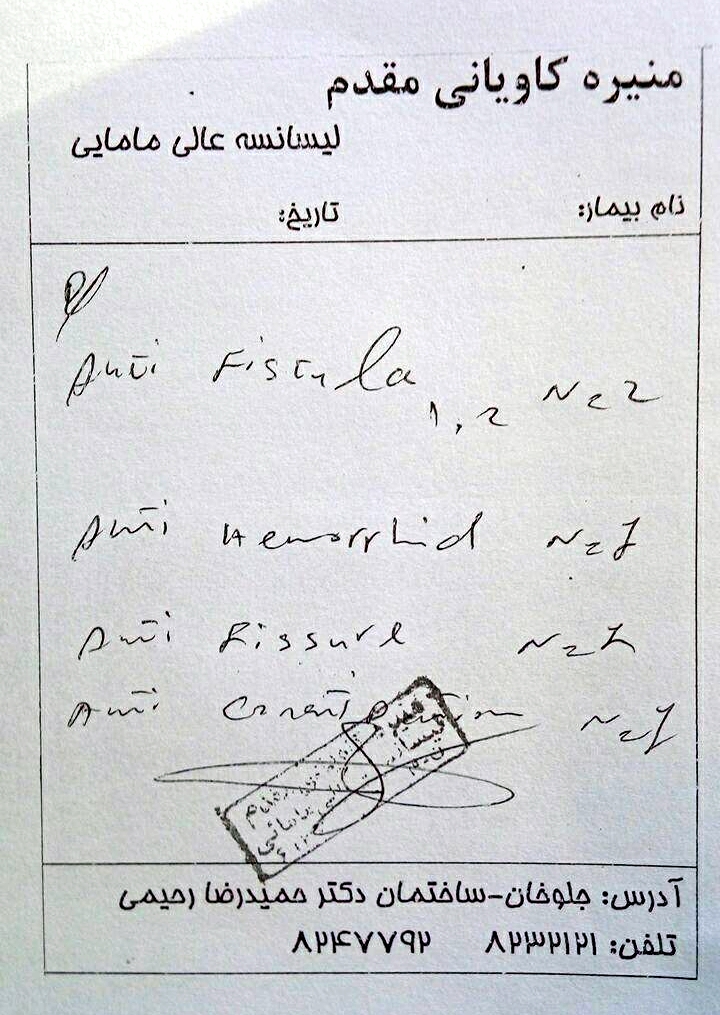 منیره کاویانی مقدم
لیسانسه عالی مامایی
نام بیمار: تاریخ:
Anti Fistula 1,2 N=2
Anti Hemorrhid N=1
Anti Fissure N=1
Anti N=1
مقدم
مامائی
آدرس: جلوخان-ساختمان دکتر حمیدرضا رحیمی
تلفن: ۸۲۳۲۱۲۱ ۸۲۴۷۷۹۲